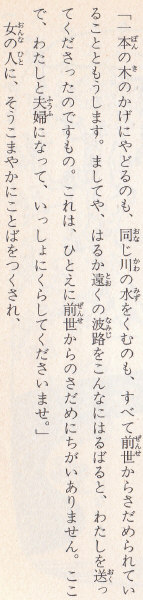 「一本の木のかげにやどるのも、同じ川の水をくむのも、すべて前世からさだめられてい
ることともうします。ましてや、はるか遠くの波路をこんなにはるばると、わたしを送っ
てくださったのですもの。これは、ひとえに前世からのさだめにちがいありません。ここ
で、わたしと夫婦になって、いっしょにくらしてくださいませ。」
女の人に、そうこまやかにことばをつくされ、